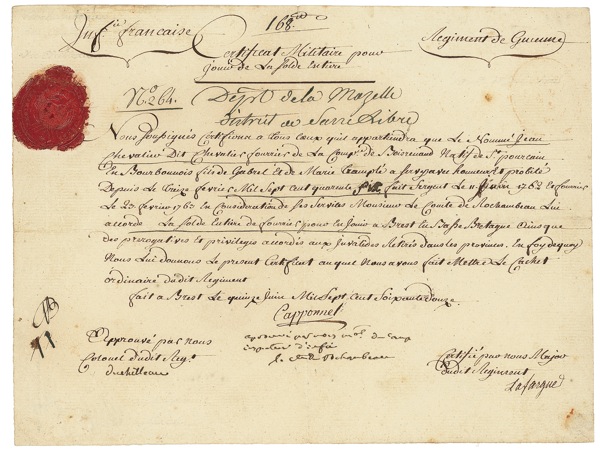 Inf.ie francaise
168
Regiment de Guienne
Certificat Militaire pour
jouir de La Solde Entiere
No 264.
Dept de la Mozelle
District de Sarre Libre
Nous Soussignés certifions a tous Ceux qu'il appartiendra que Le Nommé Jean
Chevalier Dit Chevalier fourrier de La Comp.e de Boisrenaud Natif de St pourcain
En Bourbonnois fils de Gabriel Et de Marie a servy avec honneur et probité
Depuis Le Fevrier Mil Sept Cent quarante fait Sergent Le 11 1762 Et fourrier
Le 25 fevrier 1763 En Consideration de Ses Services Monsieur Le Comte de Rochambeau Lui
accorde La Solde Entiere de fourrier pour en Jouir a Brest En Basse Bretagne Ainsi que
des prerogatives Et privileges accordés aux Invalides Retirés dans les provinces. En foy de quoy
Nous Lui donnons Le present Certificat auquel Nous avons fait Mettre Le Cachet
ordinaire dudit Regiment
fait a Brest Le quinze Juin Mil Sept Cent Soixante douze.
Capponnet
Approuvé par nous
Colonel Dudit Reg.t
duchilleau
approuvé par nous m.al de camp
inspecteur d'inf.ie
le cte de Rochambeau
Certifié par nous Major
dudit Regiment
Lafargue